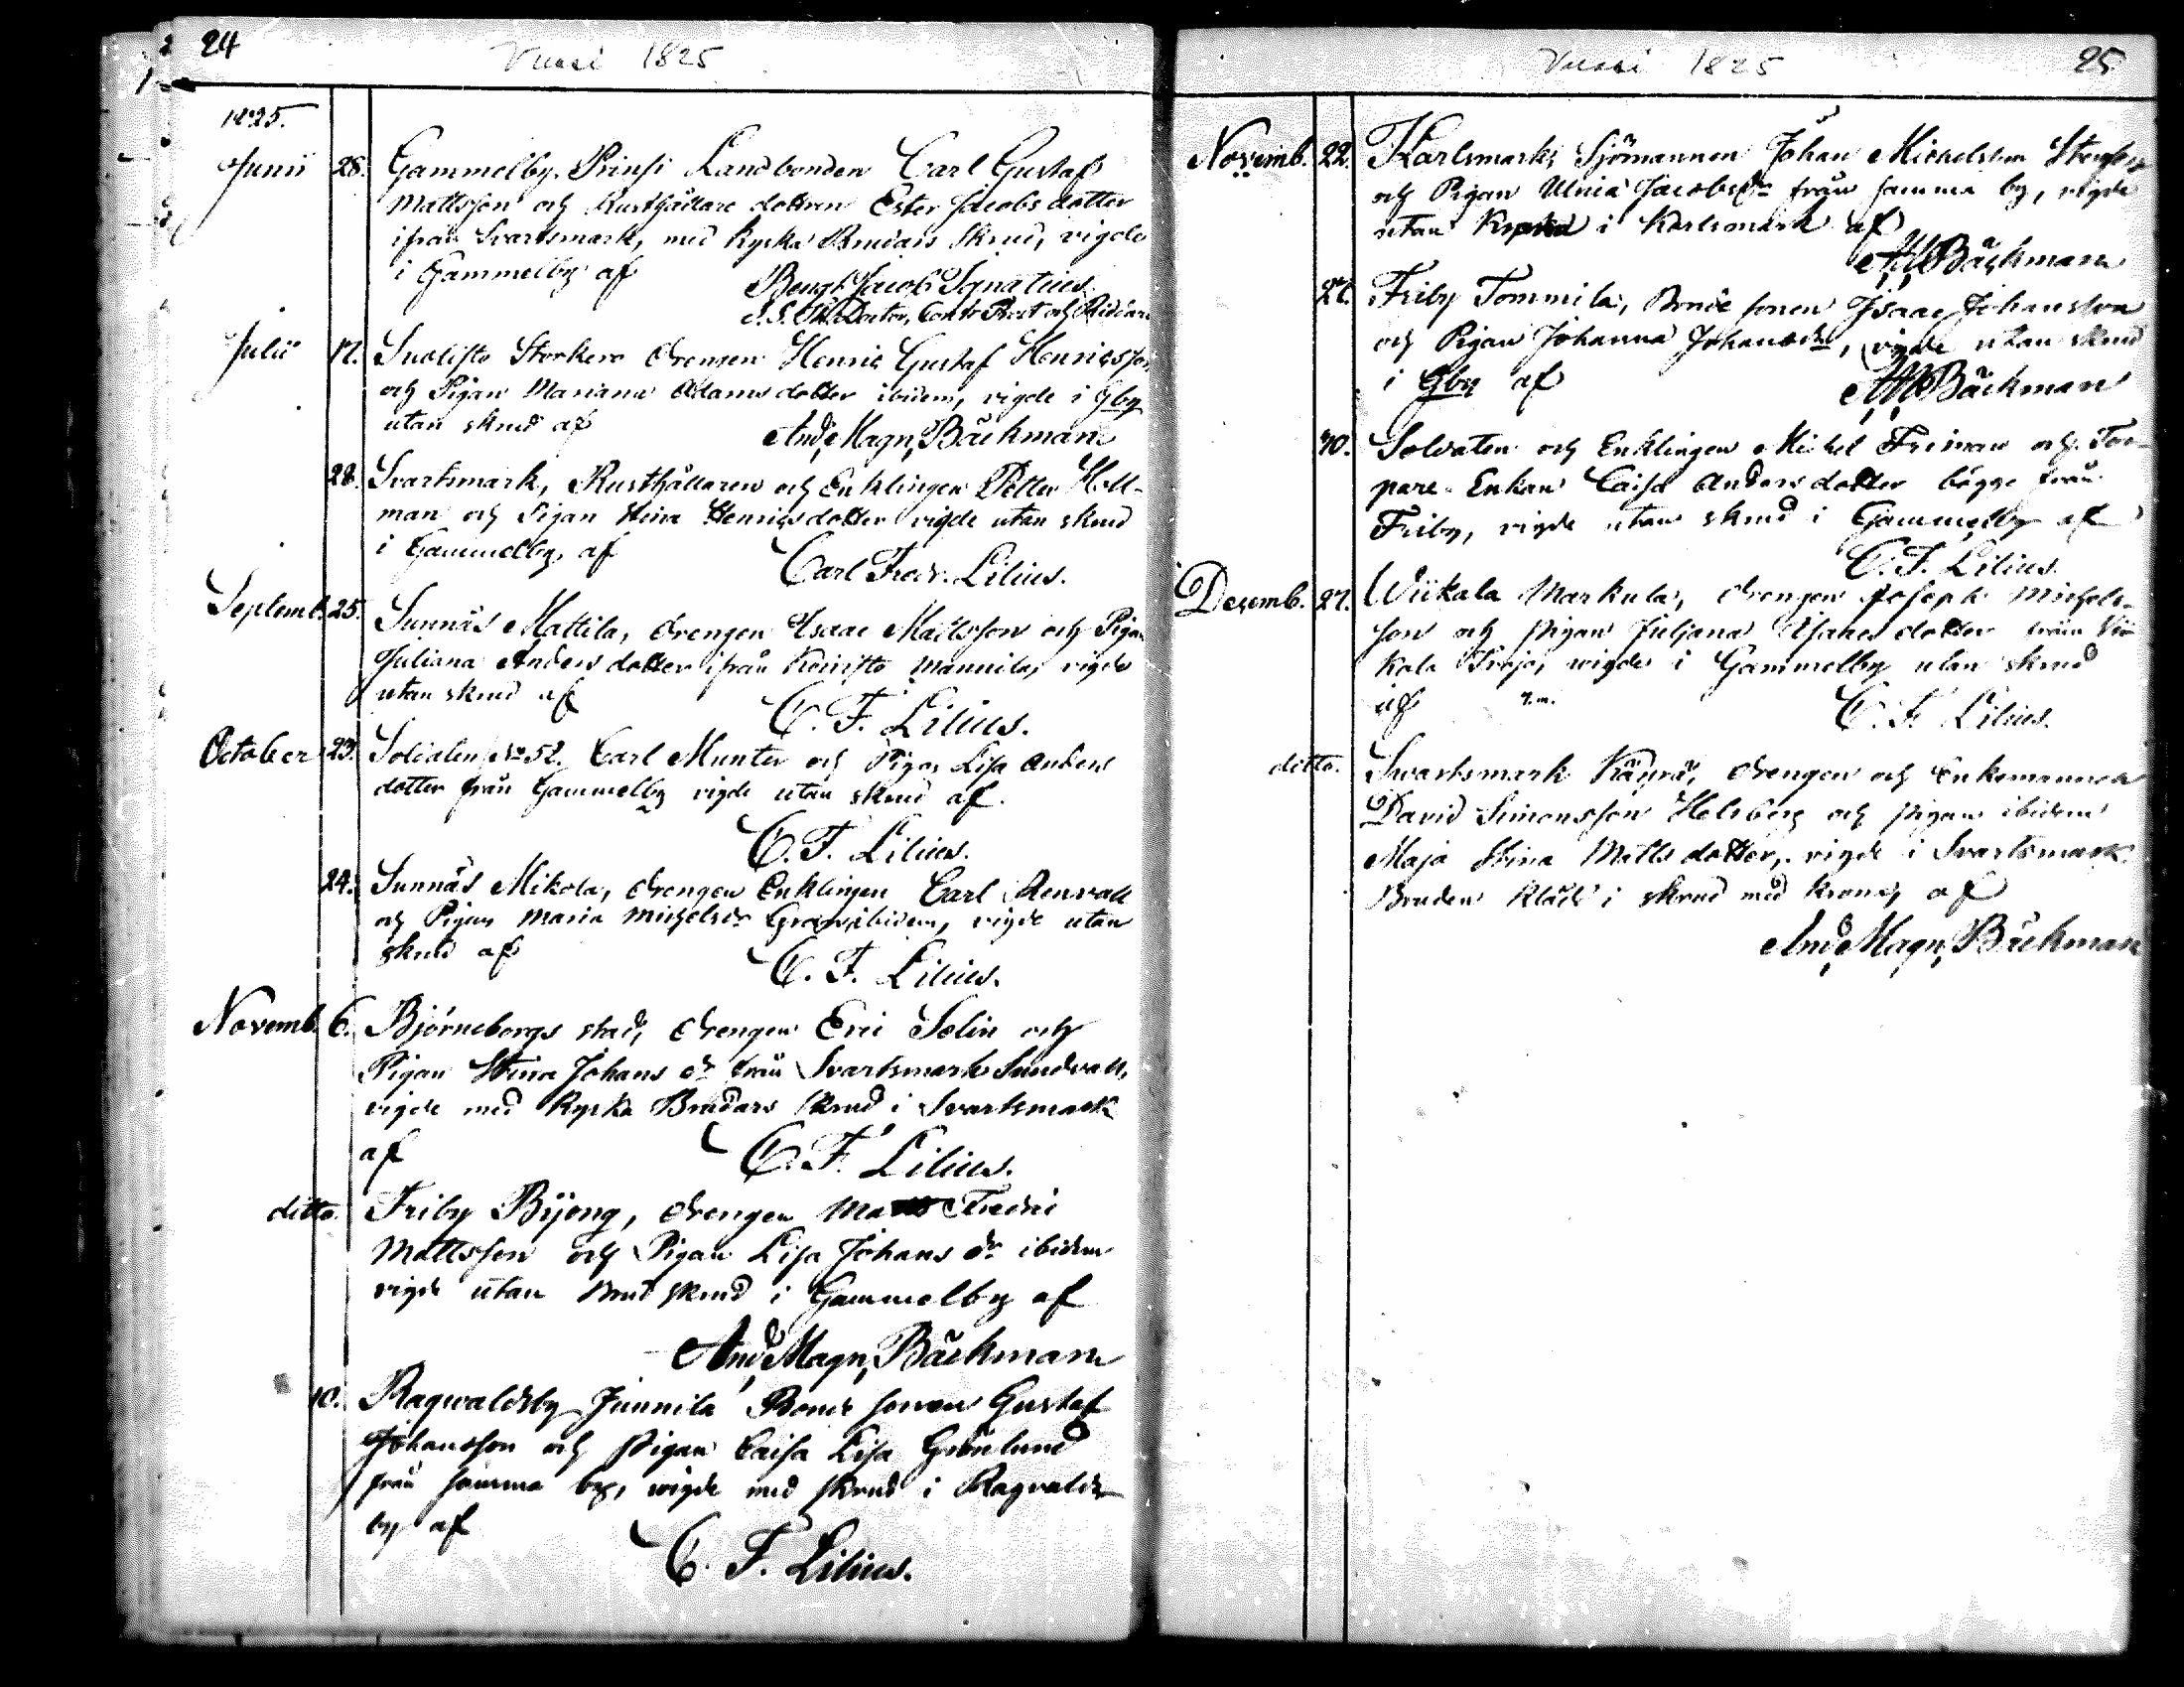 24
Vuosi 1825
1825.
Junii 28. Gammelby Prinsi Landbonden Carl Gustaf
Mattsson och Rusthållare dottren Ester Jacobsdotter
ifrån Svartsmark, med Kyrka Brudars skrud, vigde
i Gammelby af Bengt Jacob Ignatius
S. S. Th. Doctor, Contr. Prost och Riddare
Julii 17. Suolisto Storkero drengen Henric Gustaf Henricsson
och Pigan Mariana Adamsdotter ibidem, vigde i Gby
utan skrud af And. Magn. Bäckman
28. Svartsmark, Rusthållaren och Enklingen Petter Hell-
man och Pigan Stina Henricsdotter vigde utan skrud
i Gammelby, af Carl Fredr. Lilius.
Septemb. 25. Sunnäs Mattila, drengen Isaac Mattsson och Pigan
Juliana Andersdotter ifrån Koivisto Mannila, vigde
utan skrud af C. F. Lilius.
October 23. Soldaten No 52. Carl Munter och Pigan Lisa Anders
dotter från Gammelby vigde utan skrud af
C. F. Lilius.
24. Sunnäs Mikola, drengen Enklingen Carl Renvall
och Pigan Maria Michelsdr ibidem, vigde utan
skrud af C. F. Lilius.
Novemb. 6. Björneborgs stad, drengen Eric Selin och
Pigan Stina Johans dr från Svartsmark Sundvall,
vigde med Kyrka Brudars skrud i Svartsmark
af C. F. Lilius.
ditto. Friby Bijong, drengen Fredric
Mattsson och Pigan Lisa Johans dr ibidem
vigde utan Brud skrud i Gammelby af
And. Magn. Bäckman
10. Ragwaldsby Junnila Bonde sonen Gustaf
Johansson och pigan Caisa Lisa Grönlund
från samma by, wigde med skrud i Ragvalds
by af C. F. Lilius.
Vuosi 1825 25
Novemb. 22. Karlsmark, Sjömannen Johan Michelsson
och Pigan Ulrica Jacobsdr från samma by, vigde
utan i Karlsmark af
AM Bäckman
27. Friby Tommila, Bonde sonen Isaac Johansson
och Pigan Johanna Johansdr, vigde utan skrud
i Gby af AM Bäckman
Soldaten och Enklingen Michel Friman och Tor-
pare Enkan Caisa Andersdotter bägge från
Friby, vigde utan skrud i Gammelby af
C. F. Lilius.
Decemb. 27. Wiikala Markula, drengen Joseph Michels-
son och pigan Juljana Isaacs dotter från Vii
kala wigde i Gammelby utan skrud
af C. F. Lilius.
ditto. Swartsmark Käyrä, drengen och Enkemannen
David Simonsson Helsberg och pigan ibidem
Maja Stina Mattsdotter, vigde i Svartsmark.
Bruden klädd i skrud med krona, af
And. Magn. Bäckman